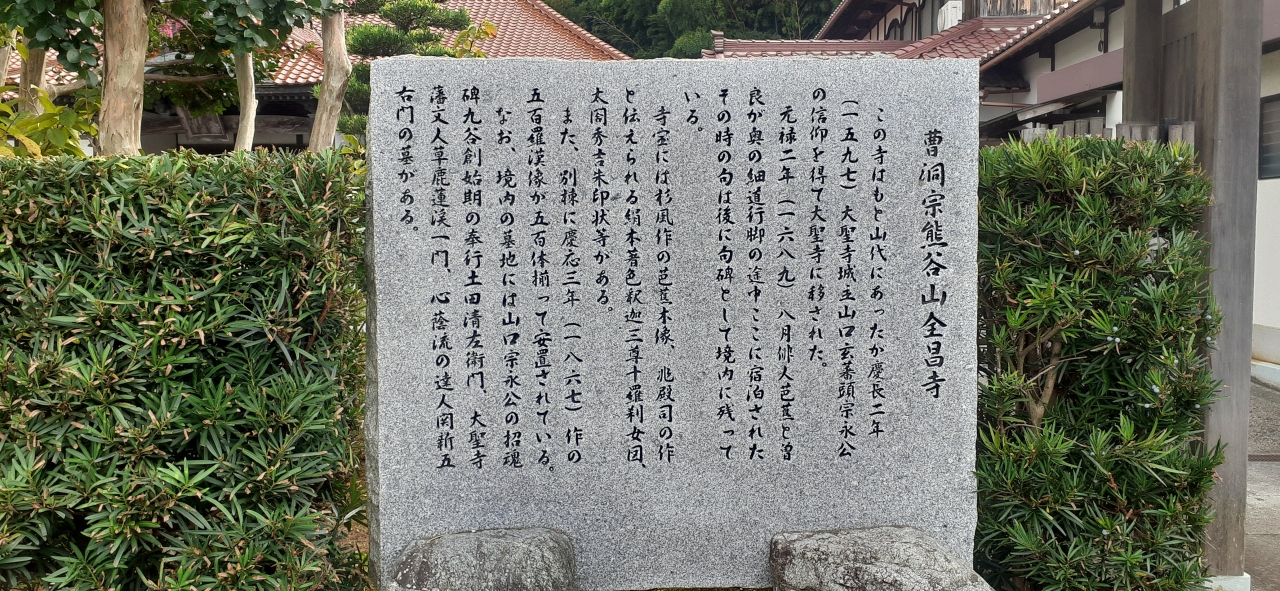 曹洞宗熊谷山全昌寺
この寺はもと山代にあったが慶長二年
(一五九七) 大聖寺城主山口玄蕃頭宗永公
の信仰を得て大聖寺に移された。
元禄二年 (一六八九) 八月俳人芭蕉と曽
良が奥の細道行脚の途中ここに宿泊された
その時の句は後に句碑として境内に残って
いる。
寺宝には杉風作の芭蕉木像、兆殿司の作
と伝えられる絹本著色釈迦三尊十羅刹女図、
太閤秀吉朱印状等がある。
また、別棟に慶応三年 (一八六七) 作の
五百羅漢像が五百体揃って安置されている。
なお、境内の墓地には山口宗永公の招魂
碑九谷創始期の奉行土田清左衛門、大聖寺
藩文人草鹿蓮渓一門、心蔭流の達人関新五
右門の墓がある。